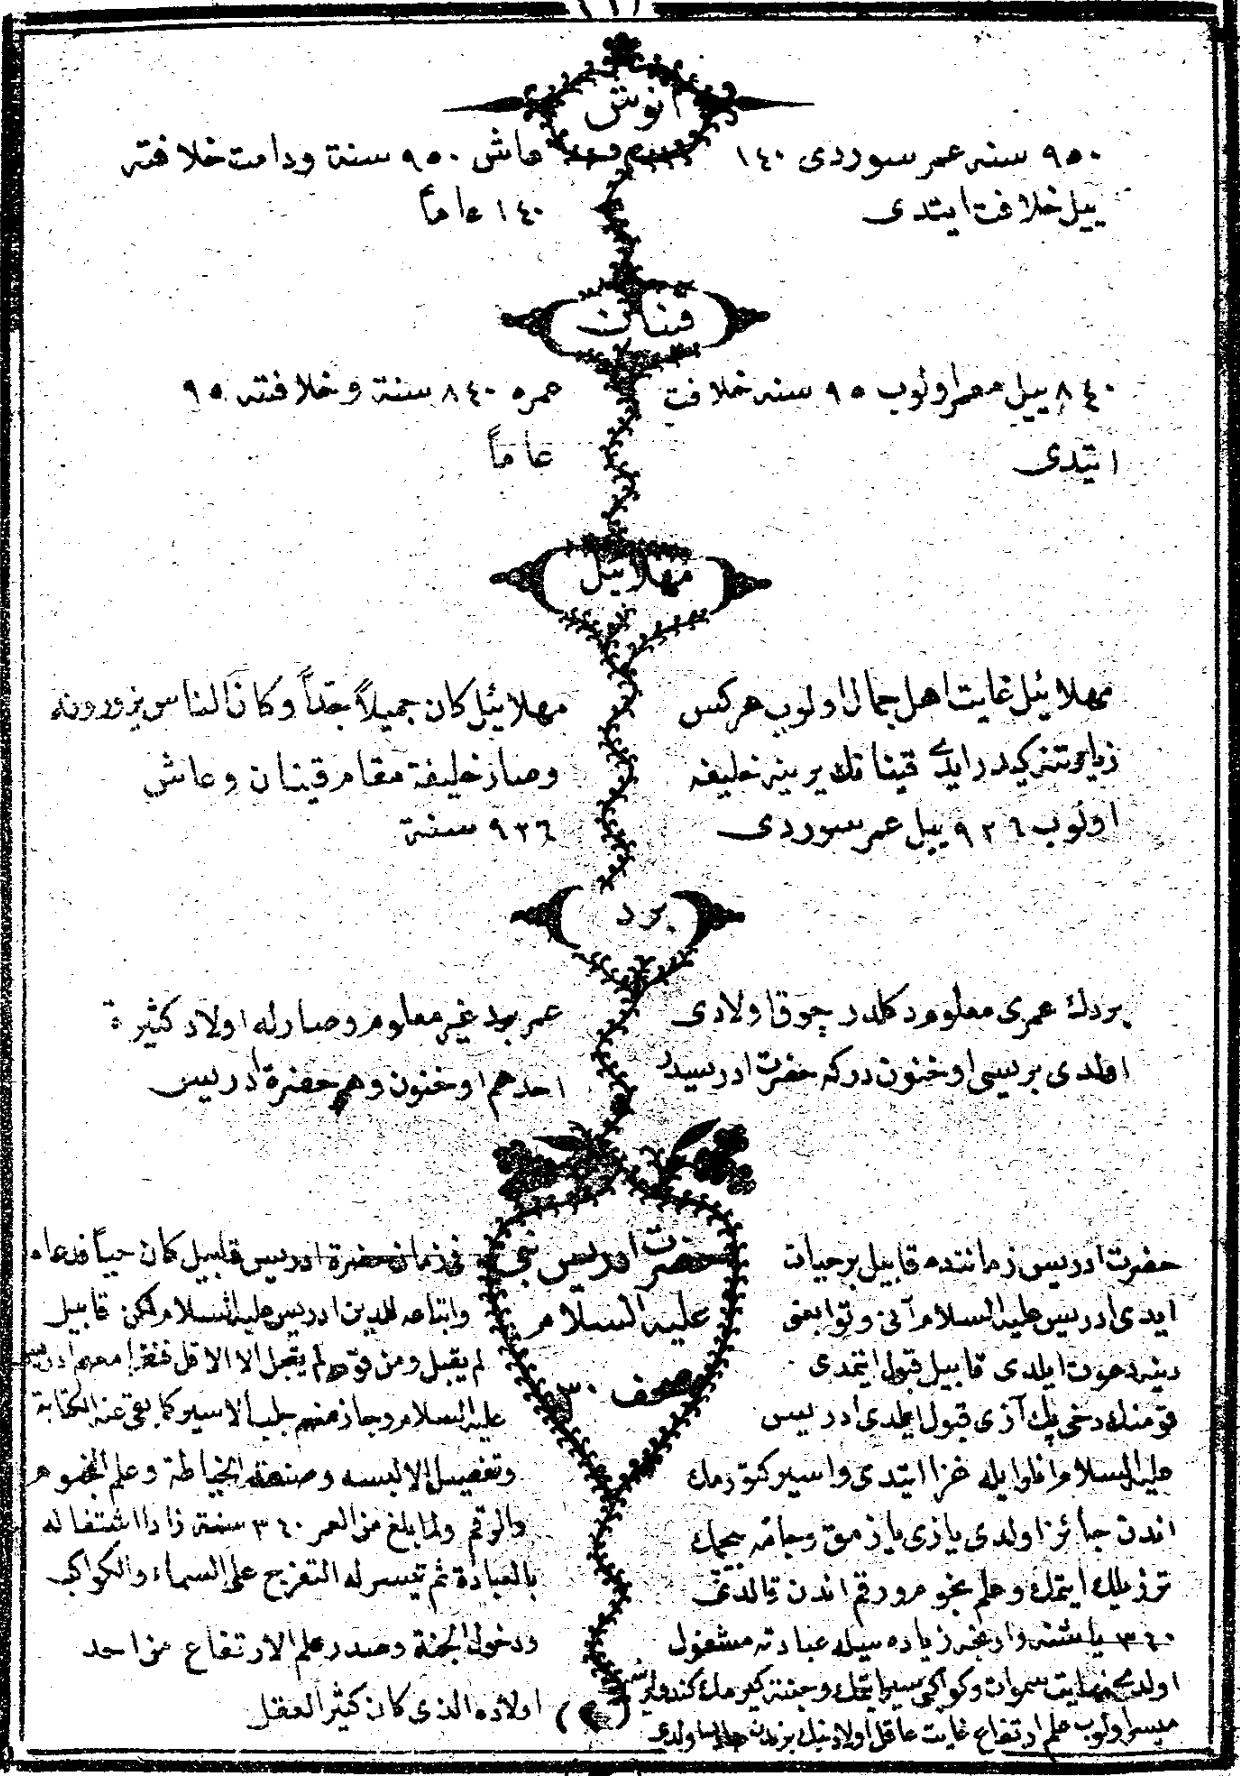 انوش
٩٥٠ سنه عمر سوردى ١٤٠
ييل خلافت ايتدى
عاش ٩٥٠ سنة ودامت خلافته
١٤٠ عاماً
قينان
٨٤٠ ييل معمر اولوب ٩٥ سنه خلافت
ايتدى
عمره ٨٤٠ سنة وخلافته ٩٥
عاماً
مهلائيل
مهلائيل غايت اهل جمال اولوب هركس
زيارتنه كيدر ايدى قينانك يرينه خليفه
اولوب ٩٢٦ ييل عمر سوردى
مهلائيل كان جميلاً جداً وكان الناس يزورونه
وصار خليفة مقام قينان وعاش
٩٢٦ سنة
يرد
يردك عمرى معلوم دكلدر چوق اولادى
اولدى بريسى اوخنوندركه حضرت ادريسدر
عمر يرد غير معلوم وصار له اولاد كثيرة
احدهم اوخنون وهو حضرة ادريس
حضرت ادريس نبى
عليه السلام
صحف ٣٠
حضرت ادريس زماننده قابيل برحيات
ايدى ادريس عليه السلام آنى وتوابعنى
دينه دعوت ايلدى قابيل قبول ايتمدى
قومندن دخى پك آزى قبول ايلدى ادريس
عليه السلام انلر ايله غزا ايتدى واسير كتورمك
اندن جائز اولدى يازى يازمق وجامه بيچمك
ترزيلك ايتمك وعلم نجوم ورقم اندن قالدى
٣٦٠ ياشنه وارنجه زياده سيله عبادته مشغول
اولدى نهايت سموات وكواكبى سير ايتمك وجنته كيرمك كندولره
ميسر اولوب علم ارتفاع غايت عاقل اولادينك برندن اولدى
فى زمان حضرة ادريس قابيل كان حياً فدعاه
واتباعه للدين ادريس عليه السلام لكن قابيل
لم يقبل ومن قومه لم يقبل الا الاقل فغزا معهم ادريس
عليه السلام وجاز منهم جلب الاسير كما بقى عنه الكتابة
وتفصيل الالبسه وصنعة الخياطة وعلم النجوم
والرقم ولما بلغ من العمر ٣٤٠ سنة زاد اشتغاله
بالعبادة ثم تيسر له التفريج على السماء والكواكب
ودخول الجنة وصدر علم الارتفاع من احد
اولاده الذى كان كثير العقل